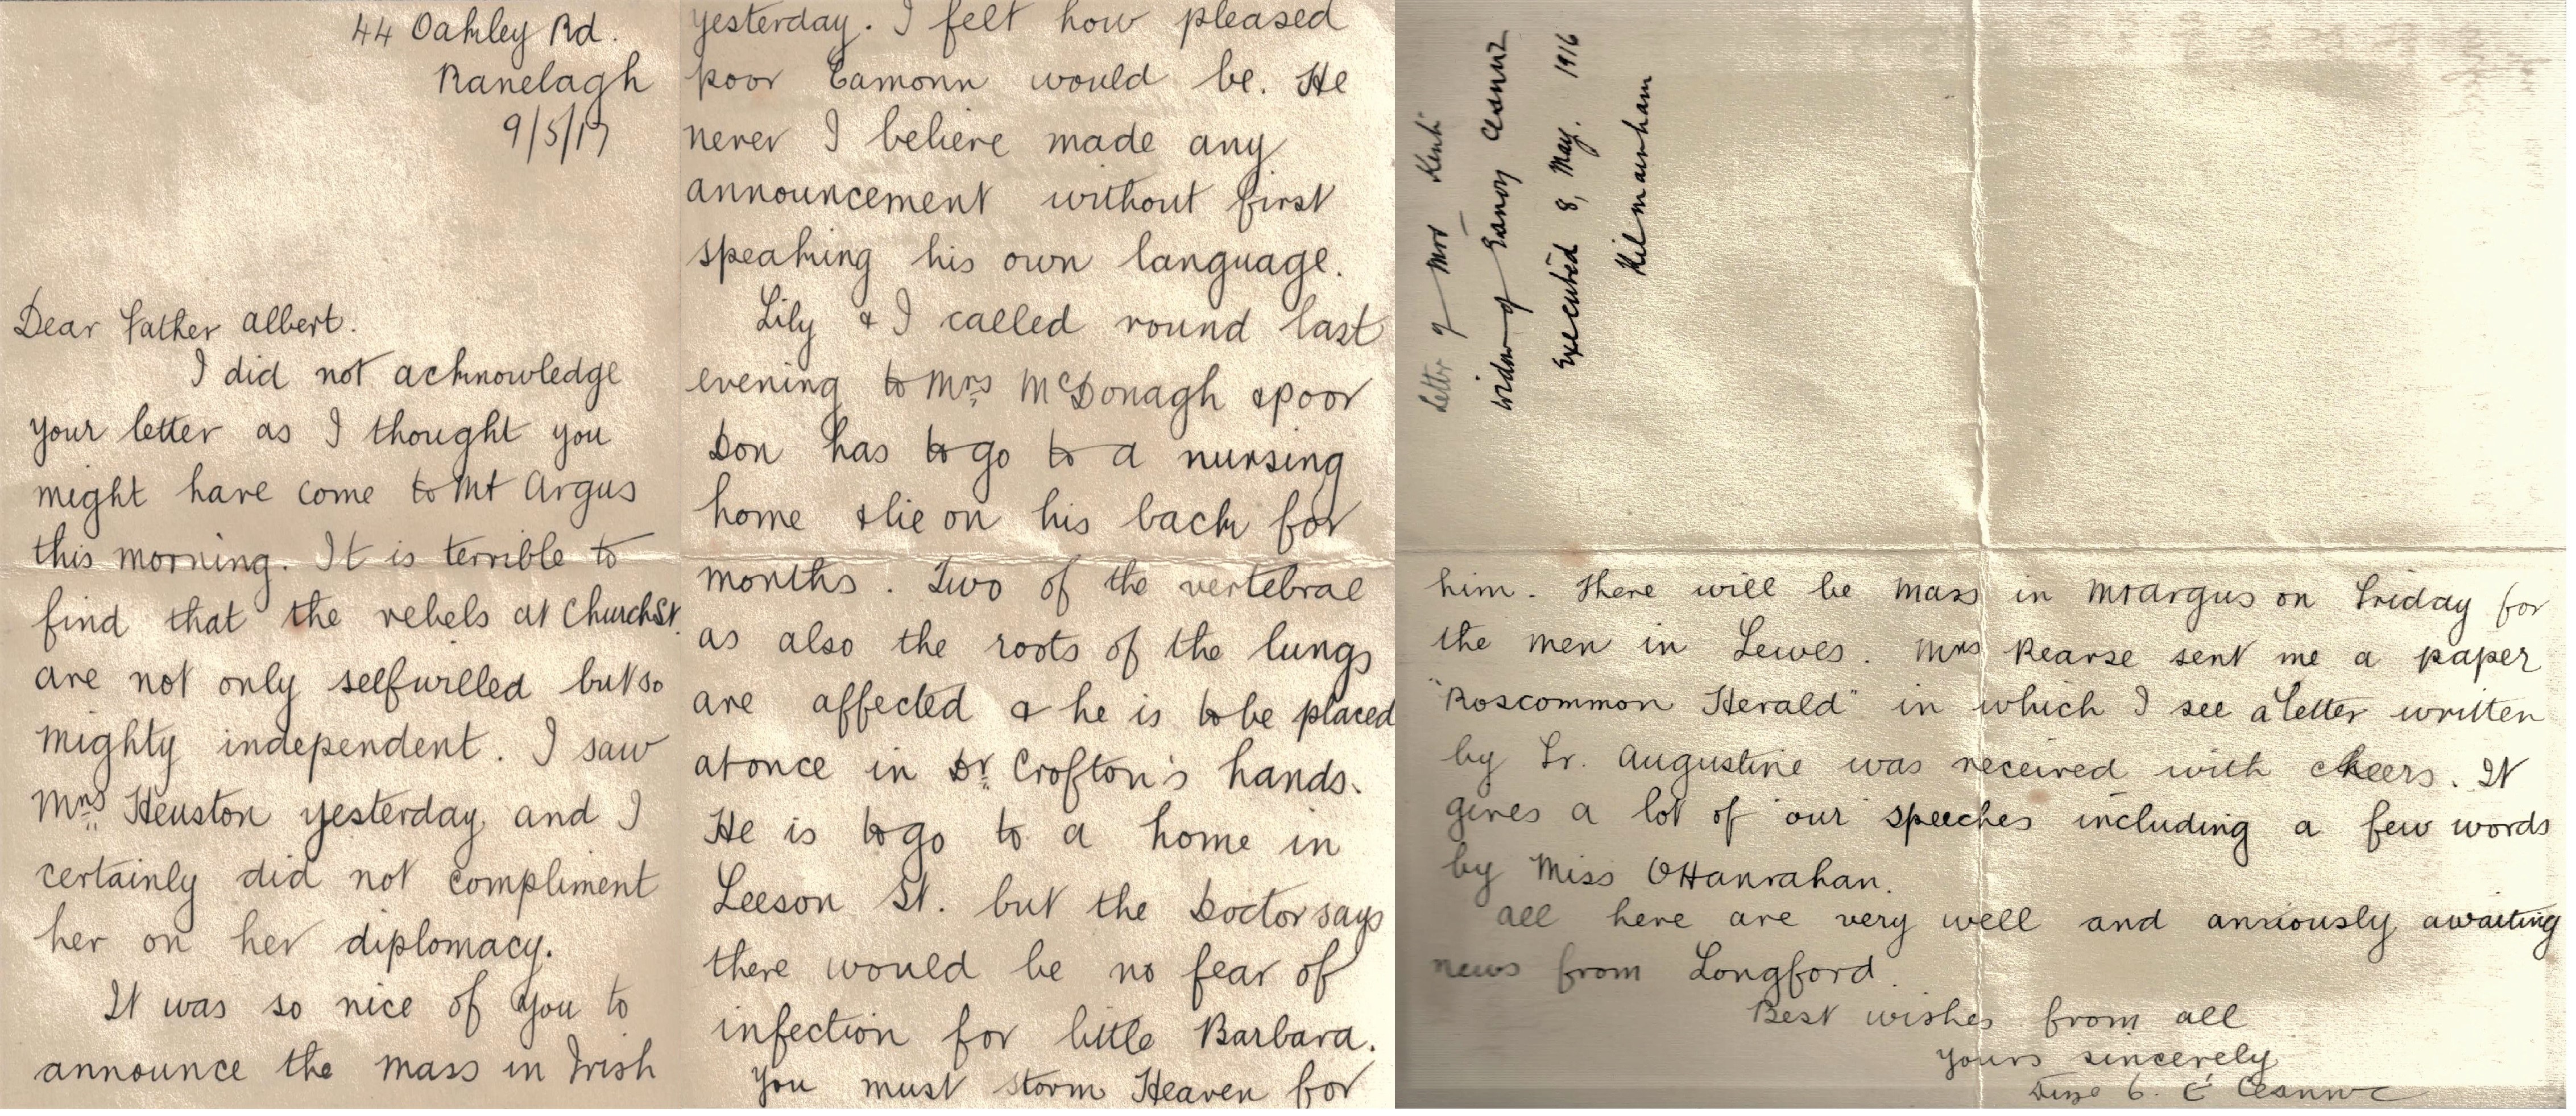 44 Oakley Rd.
Ranelagh
9/5/17
Dear Father Albert.
I did not acknowledge
your letter as I thought you
might have come to Mt Argus
this morning. It is terrible to
find that the rebels at Church St.
are not only selfwilled but so
mighty independent. I saw
Mrs Heuston yesterday and I
certainly did not compliment
her on her diplomacy.
It was so nice of you to
announce the mass in Irish
yesterday. I felt how pleased
poor Eamonn would be. He
never I believe made any
announcement without first
speaking his own language.
Lily & I called round last
evening to Mrs McDonagh & poor
Don has to go to a nursing
home & lie on his back for
months. Two of the vertebrae
as also the roots of the lungs
are affected & he is to be placed
at once in Dr. Crofton's hands.
He is to go to a home in
Leeson St. but the Doctor says
there would be no fear of
infection for little Barbara.
You must storm Heaven for
Letter of Mrs Kent
widow of Eamon Ceannt
Executed 8, May. 1916
Kilmainham
him. There will be mass in Mt Argus on Friday for
the men in Lewes. Mrs Pearse sent me a paper
"Roscommon Herald" in which I see a letter written
by Fr. Augustine was received with cheers. It
gives a lot of "our" speeches including a few words
by Miss O'Hanrahan.
All here are very well and anxiously awaiting
news from Longford.
Best wishes from all
yours sincerely
Ceannt